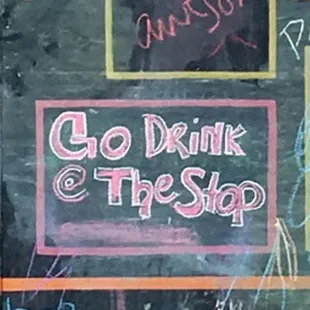 Go Drink
@ The Stop